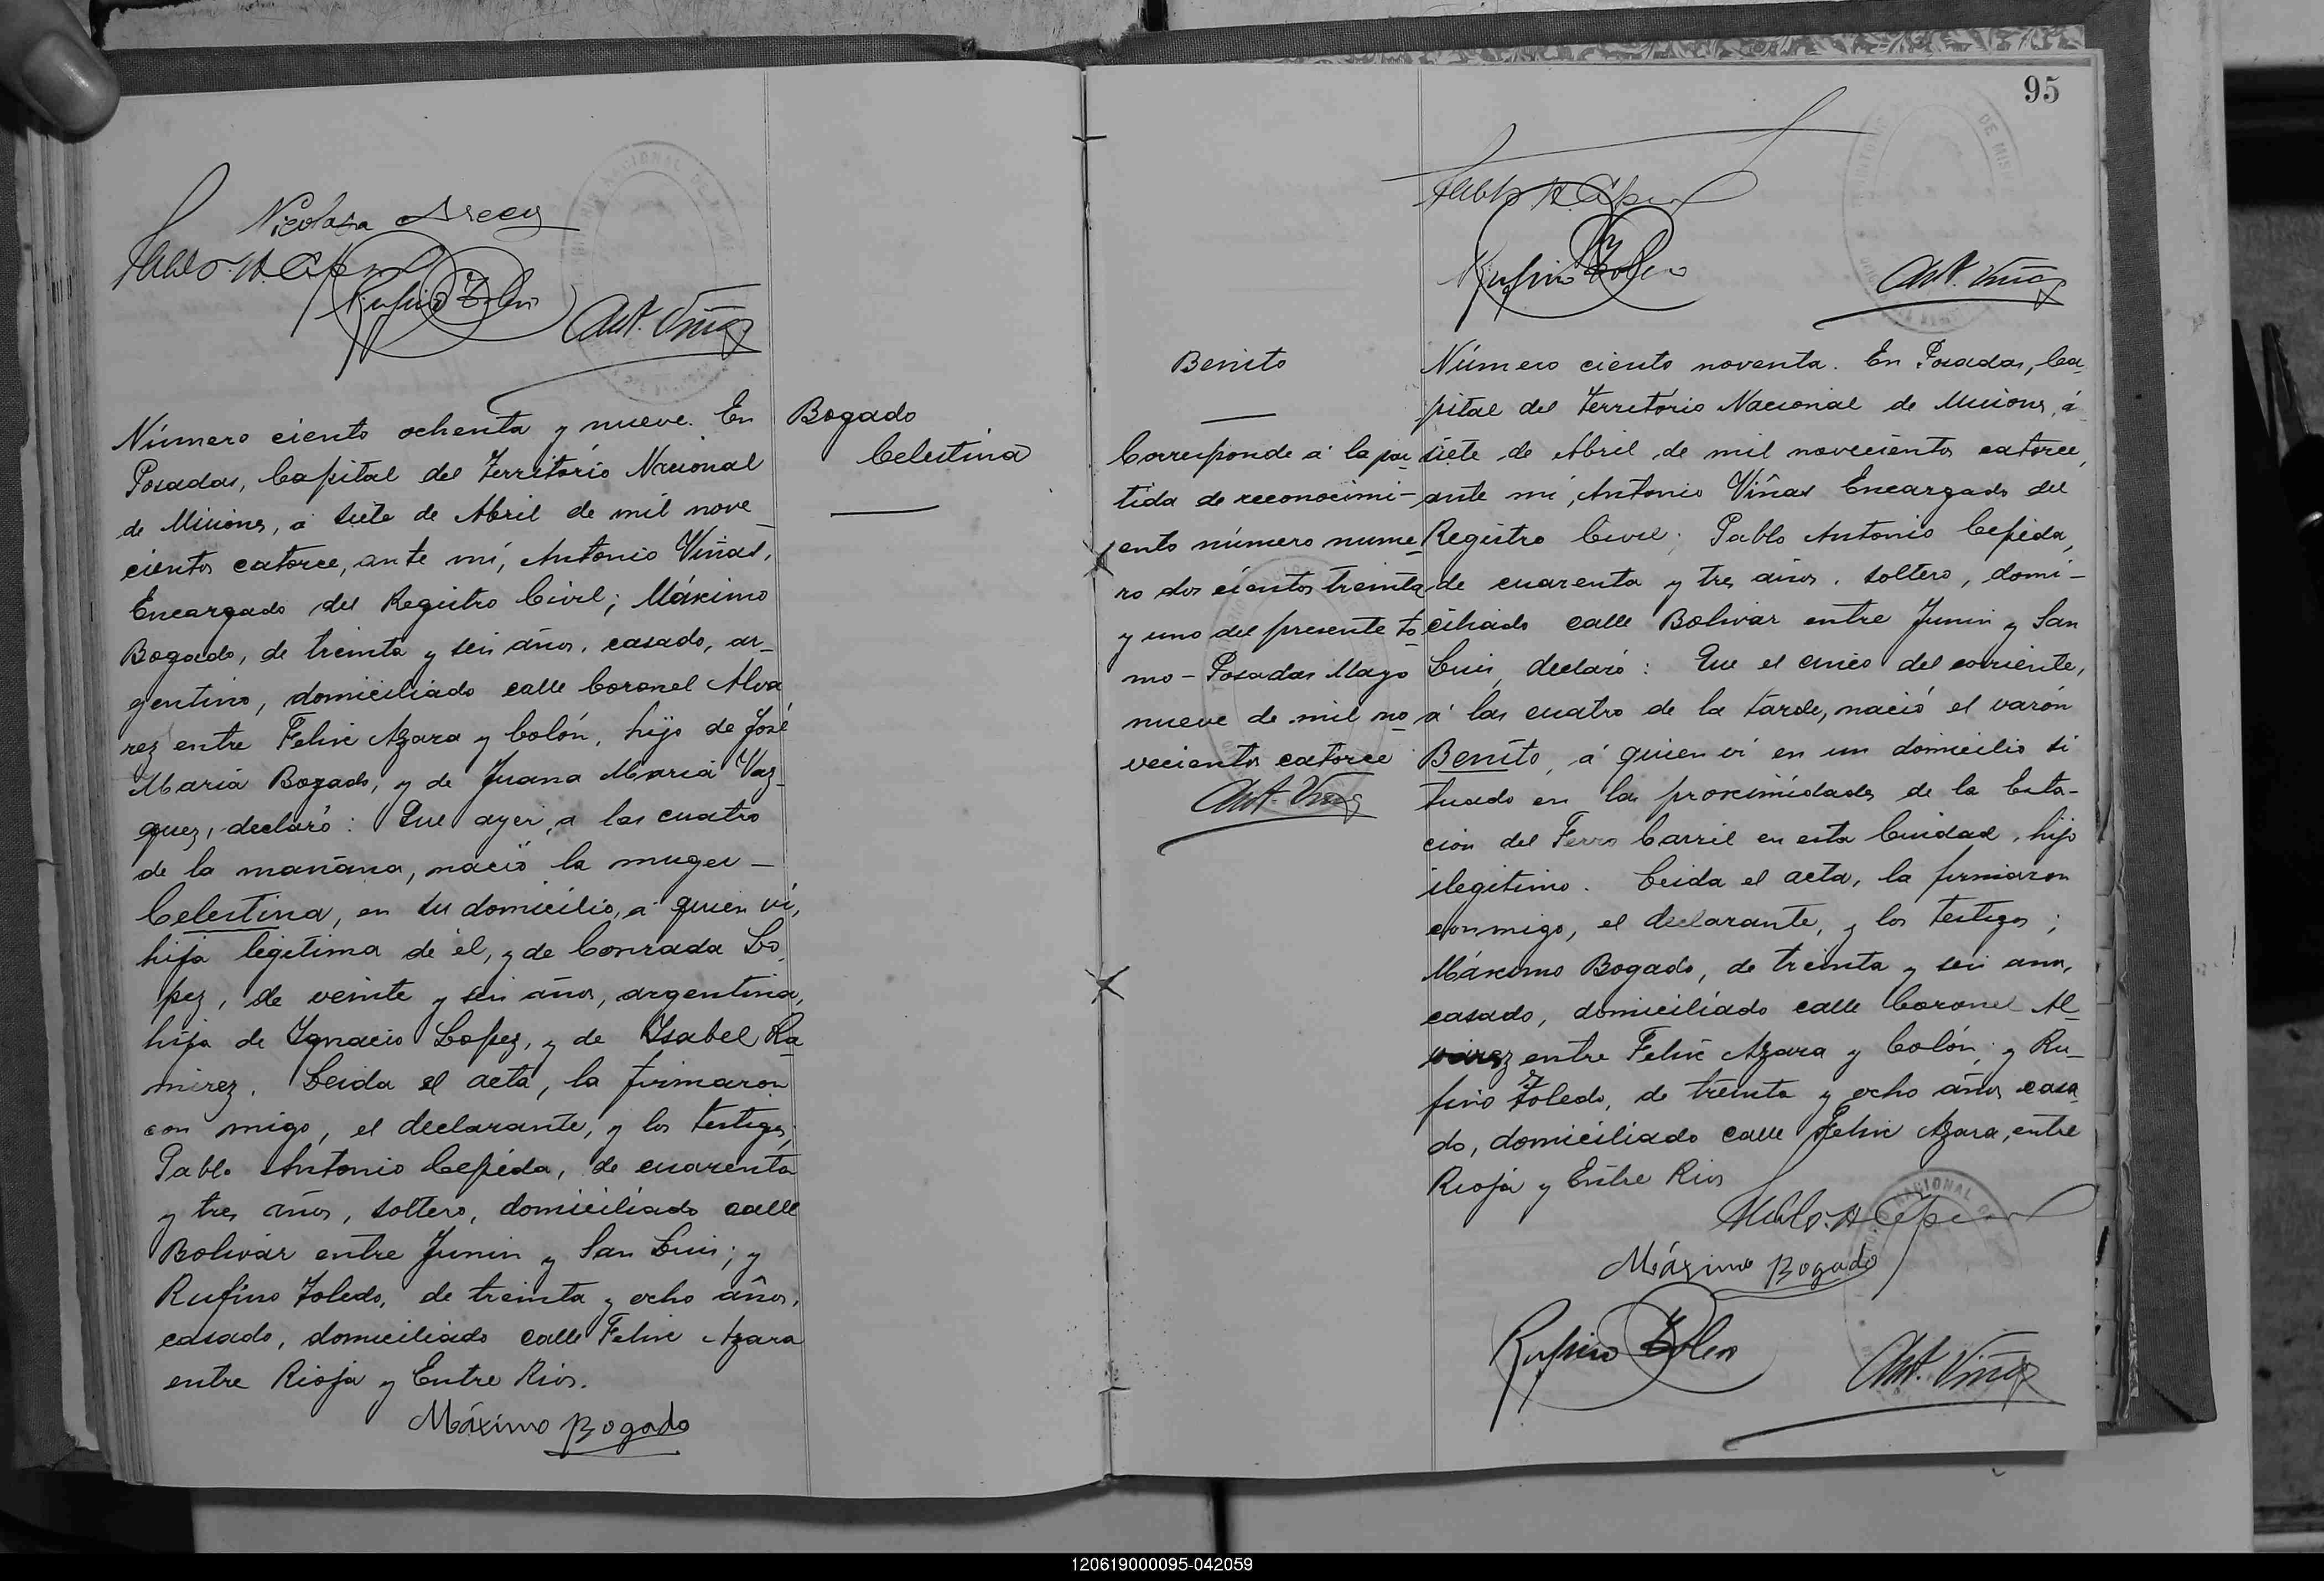 Nicolasa
Rufino Toledo
Ant. Viñas
Número ciento ochenta y nueve. En
Posadas, Capital del Territorio Nacional
de Misiones, á siete de Abril de mil nove
cientos catorce, ante mí, Antonio Viñas,
Encargado del Registro Civil; Máximo
Bogado, de treinta y seis años, casado, ar-
gentino, domiciliado calle Coronel Alva
rez entre Felix Azara y Colón, hijo de José
María Bogado, y de Juana María Vaz-
quez, declaró: Que ayer, a las cuatro
de la mañana, nació la muger -
Celestina, en su domicilio, a quien ví,
hija legitima de él, y de Conrada Lo
pez, de veinte y seis años, argentina,
hija de Ignacio Lopez, y de Isabel Ra
mirez. Leida el acta, la firmaron
con migo, el declarante, y los testigos,
Pablo Antonio Cepéda, de cuarenta
y tres años, soltero, domiciliado calle
Bolivar entre Junin y San Luis; y
Rufino Toledo, de treinta y ocho años,
casado, domiciliado calle Felix Azara
entre Rioja y Entre Rios.
Máximo Bogado
Bogado
Celestina
95
Rufino Toledo
Ant. Viñas
Benito
Corresponde á la par
tida de reconocimi-
ento número nume
ro dos cientos treinta
y uno del presente to
mo - Posadas Mayo
nueve de mil no
vecientos catorce
Ant. Viñas
Número ciento noventa. En Posadas, Ca
pital del Territorio Nacional de Misiones, á
siete de Abril de mil novecientos catorce,
ante mí, Antonio Viñas Encargado del
Registro Civil; Pablo Antonio Cepéda,
de cuarenta y tres años, soltero, domi-
ciliado calle Bolivar entre Junin y San
Luis, declaró: Que el cinco del corriente,
á las cuatro de la tarde, nació el varón
Benito, á quien vi en un domicilio si
tuado en las proximidades de la Esta-
cion del Ferro Carril en esta Ciudad, hijo
ilegitimo. Leida el acta, la firmaron
conmigo, el declarante, y los testigos;
Máximo Bogado, de treinta y seis años,
casado, domiciliado calle Coronel Al
varez entre Felix Azara y Colón, y Ru-
fino Toledo, de treinta y ocho años casa
do, domiciliado calle Felix Azara, entre
Rioja y Entre Rios
Máximo Bogado
Rufino Toledo
Ant. Viñas
120619000095-042059